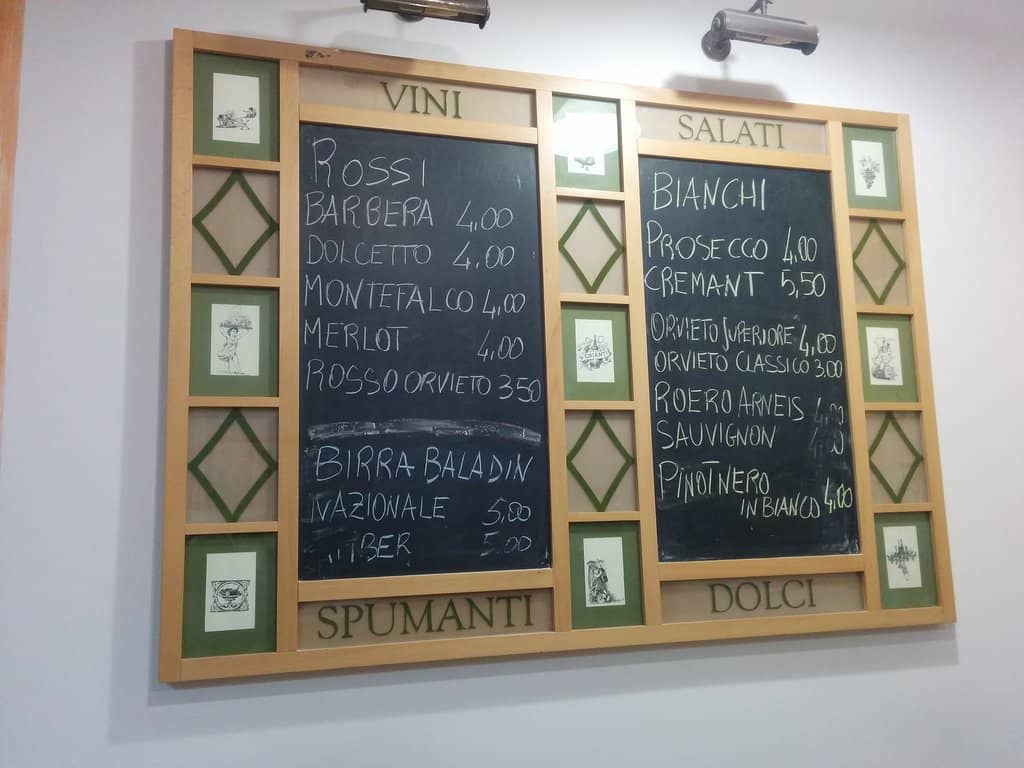 VINI
ROSSI
BARBERA 4,00
DOLCETTO 4,00
MONTEFALCO 4,00
MERLOT 4,00
ROSSO ORVIETO 3 50
BIRRA BALADIN
NAZIONALE 5,00
5,00
SPUMANTI
SALATI
BIANCHI
PROSECCO 4,00
CREMANT 5,50
ORVIETO SUPERIORE 4,00
ORVIETO CLASSICO 3,00
ROERO ARNEIS 4,00
SAUVIGNON
PINOT NERO
IN BIANCO 4,00
DOLCI
CHIANTI